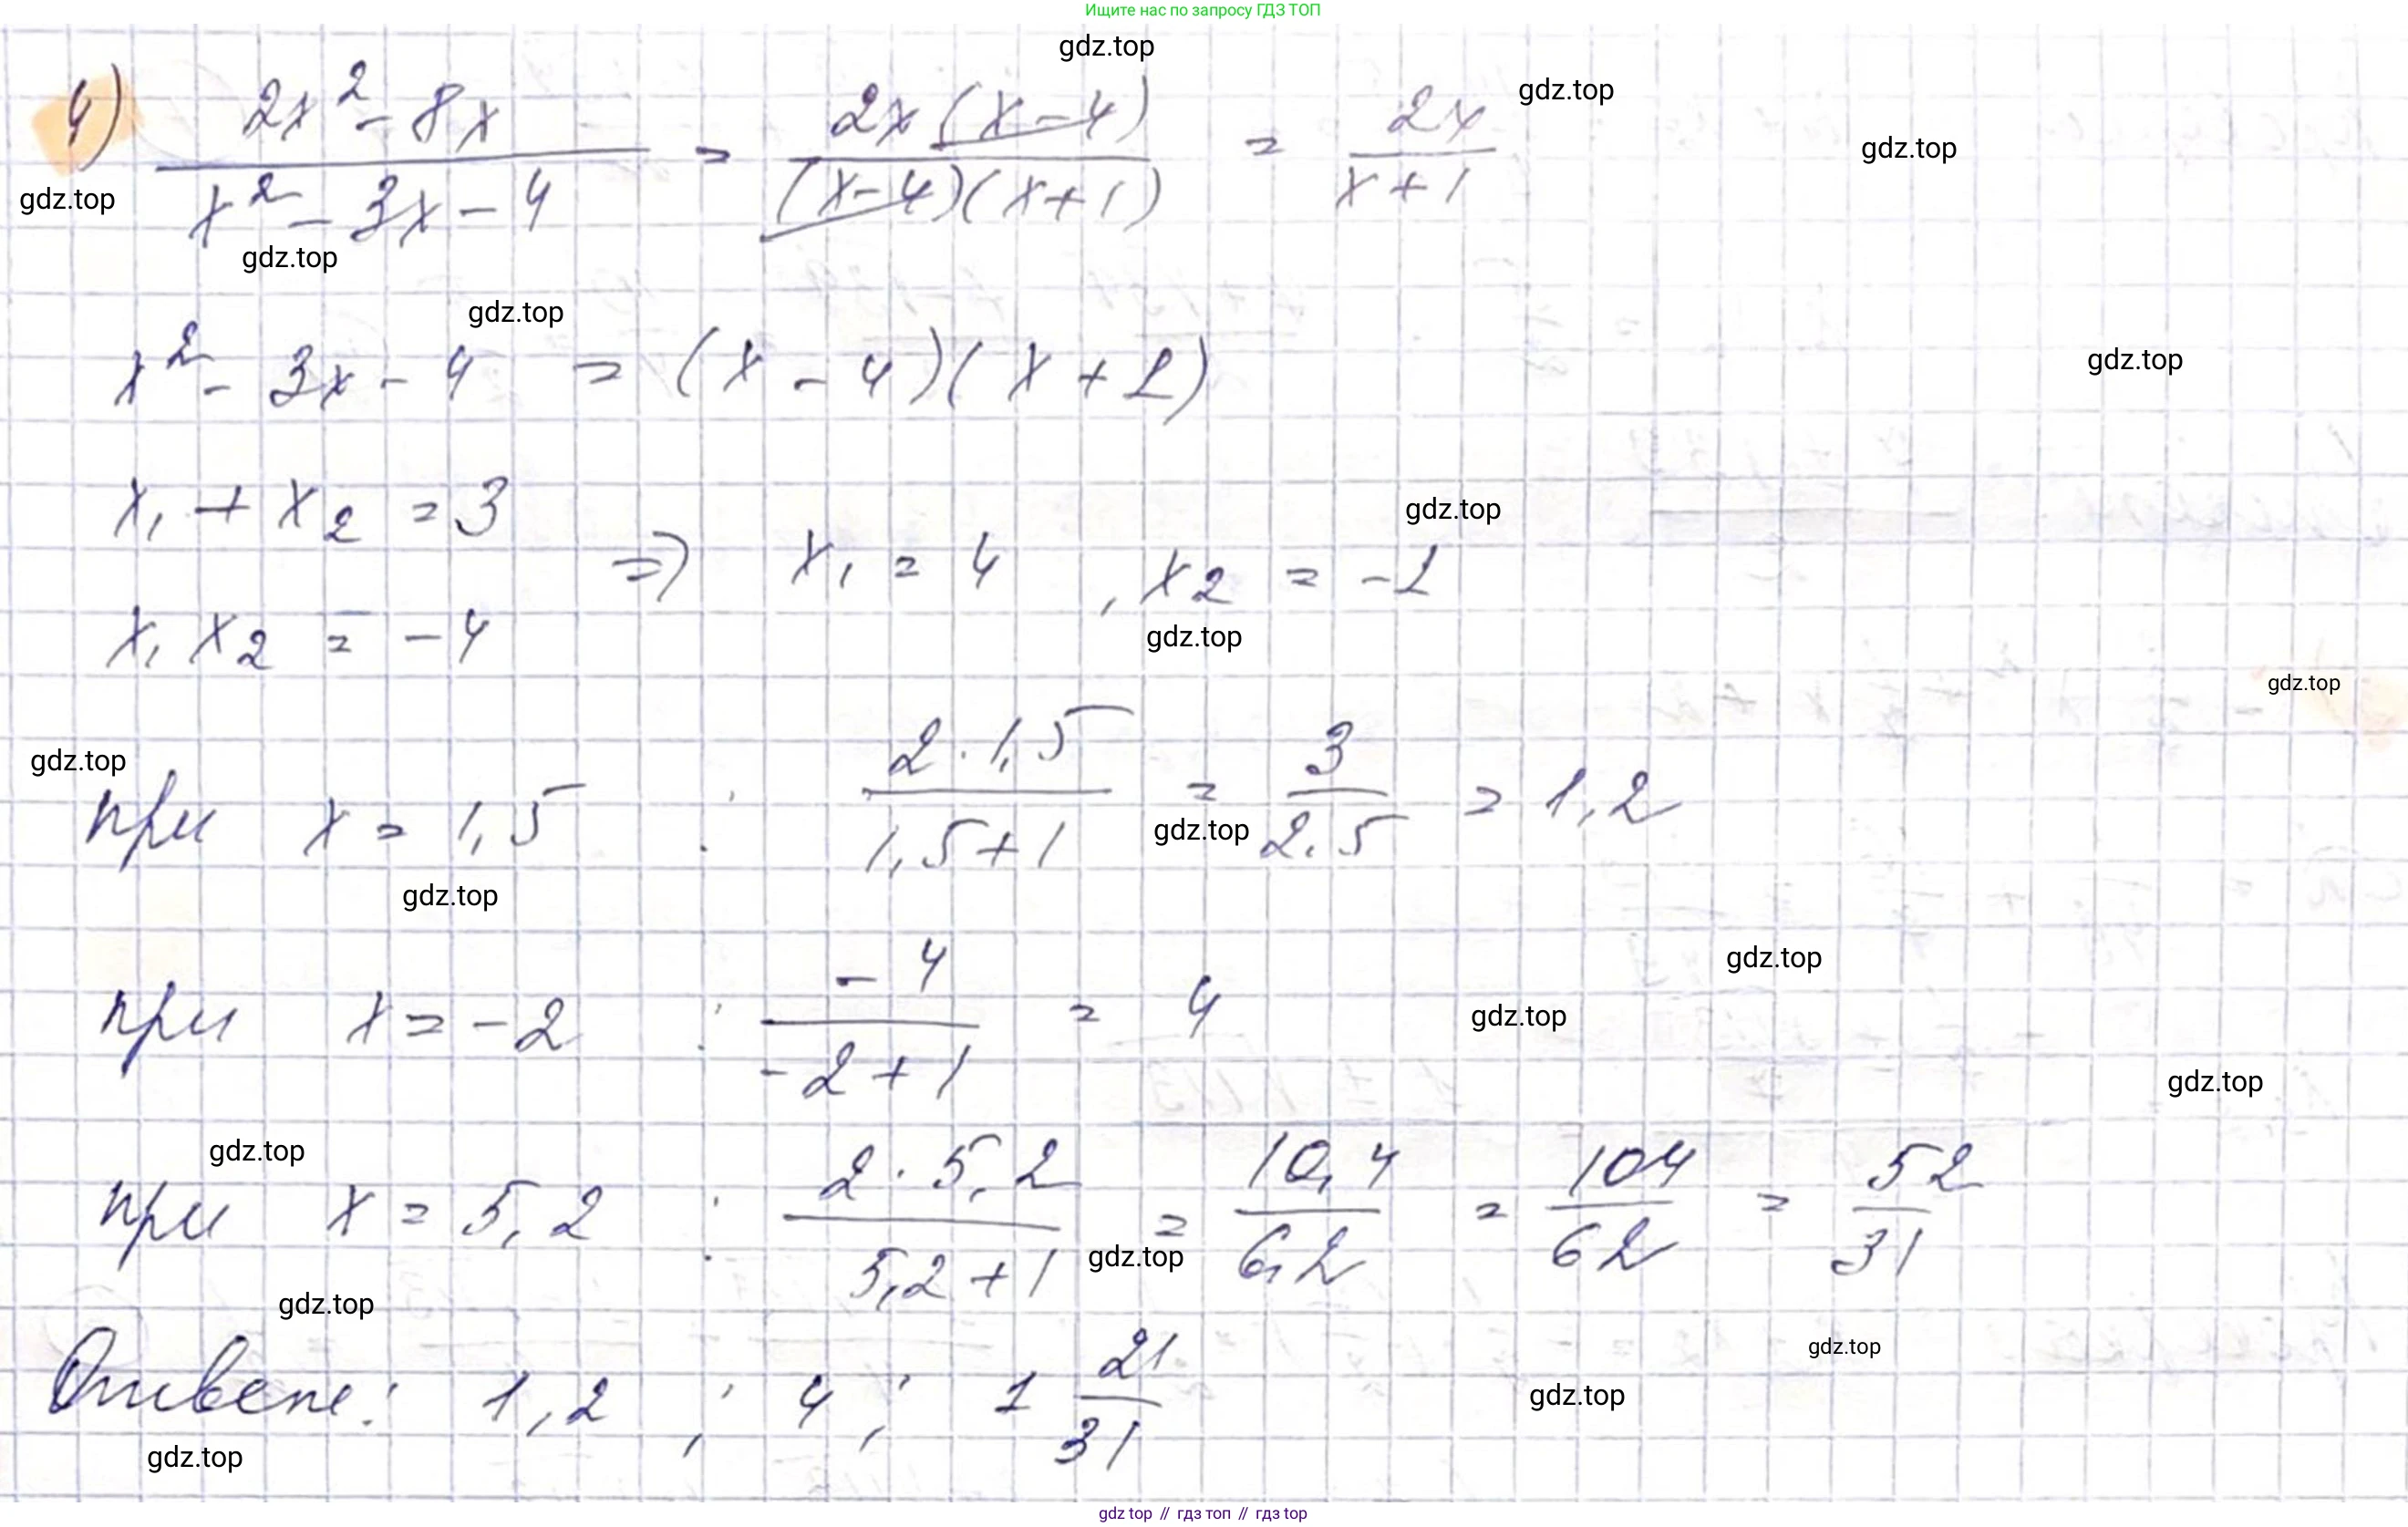 Ищите нас по запросу ГДЗ ТОП
gdz.top
gdz.top
gdz.top
4) (2x² - 8x)/(x² - 3x - 4) = (2x(x - 4))/((x - 4)(x + 1)) = 2x/(x + 1)
gdz.top
gdz.top
gdz.top
gdz.top
x² - 3x - 4 = (x - 4)(x + 1)
x₁ + x₂ = 3
gdz.top
⇒ x₁ = 4, x₂ = -1
x₁ x₂ = -4
gdz.top
gdz.top
gdz.top
при x = 1,5 : (2 · 1,5)/(1,5 + 1) = 3/2,5 = 1,2
gdz.top
gdz.top
gdz.top
при x = -2 : (-4)/(-2 + 1) = 4
gdz.top
gdz.top
gdz.top
при x = 5,2 : (2 · 5,2)/(5,2 + 1) = 10,4/6,2 = 104/62 = 52/31
gdz.top
gdz.top
gdz.top
Ответ: 1,2 ; 4 ; 1 21/31
gdz.top
gdz.top
gdz top // гдз топ // гдз top